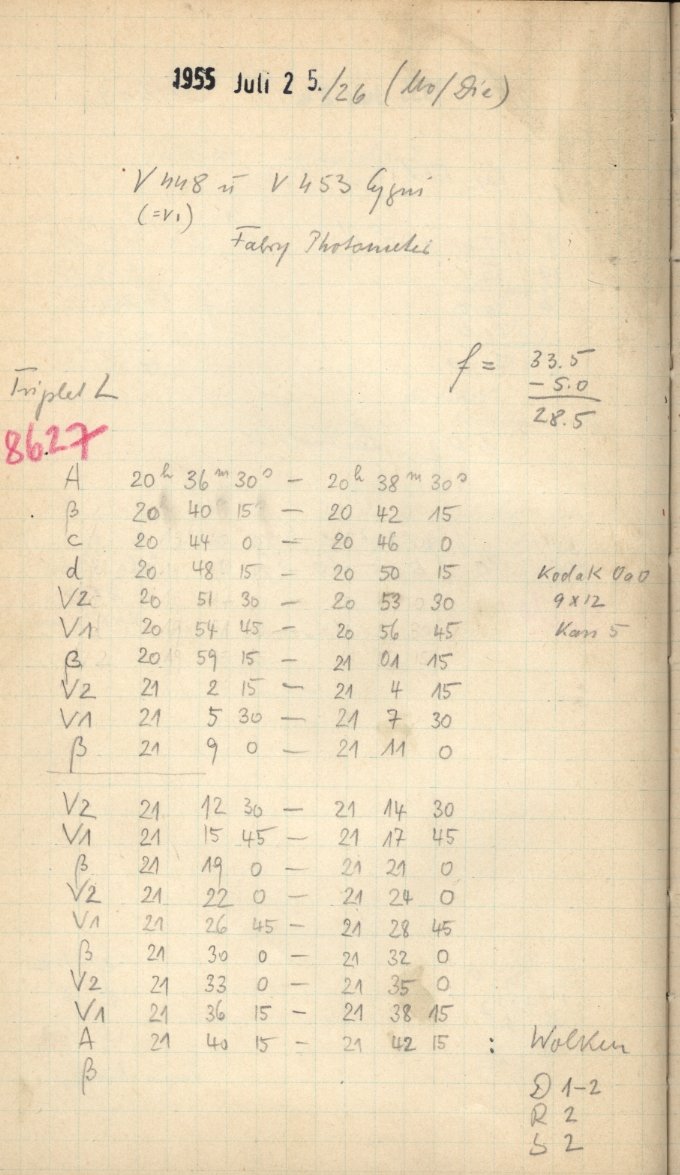 1955 Juli 25./26 (Mo/Die)
V 448 u V 453 Cygni
(=V1)
Fabry Photometer
f = 33.5
- 5.0
28.5
Triplet L
8627
A 20h 36m 30s - 20h 38m 30s
β 20 40 15 - 20 42 15
c 20 44 0 - 20 46 0
d 20 48 15 - 20 50 15 Kodak OaO
V2 20 51 30 - 20 53 30 9x12
V1 20 54 45 - 20 56 45 Kass 5
β 20 59 15 - 21 01 15
V2 21 2 15 - 21 4 15
V1 21 5 30 - 21 7 30
β 21 9 0 - 21 11 0
V2 21 12 30 - 21 14 30
V1 21 15 45 - 21 17 45
β 21 19 0 - 21 21 0
V2 21 22 0 - 21 24 0
V1 21 26 45 - 21 28 45
β 21 30 0 - 21 32 0
V2 21 33 0 - 21 35 0
V1 21 36 15 - 21 38 15
A 21 40 15 - 21 42 15 : Wolken
β
D 1-2
R 2
S 2